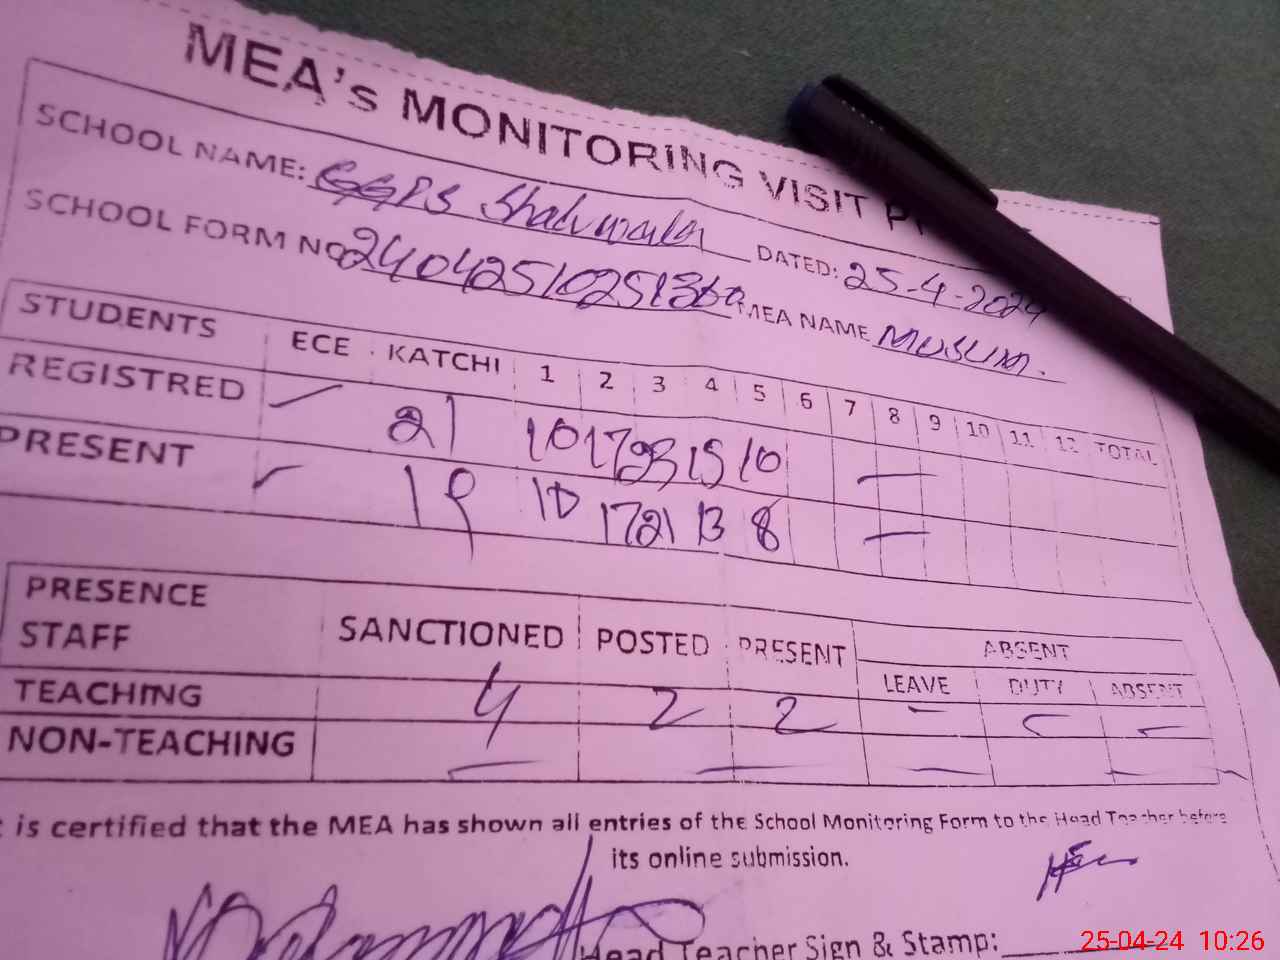 MEA's MONITORING VISIT
SCHOOL NAME: GGPS Shaluwala DATED: 25-4-2024
SCHOOL FORM NO 24042510251360 MEA NAME Muslim.
STUDENTS ECE KATCHI 1 2 3 4 5 6 7 8 9 10 11 12 TOTAL
REGISTRED 21 10 17 23 15 10 —
PRESENT 19 10 17 21 13 8 —
PRESENCE STAFF SANCTIONED POSTED PRESENT ABSENT
LEAVE DUTY ABSENT
TEACHING 4 2 2 – – –
NON-TEACHING — — — —
is certified that the MEA has shown all entries of the School Monitoring Form to the Head Teacher before
its online submission.
Head Teacher Sign & Stamp:
25-04-24 10:26